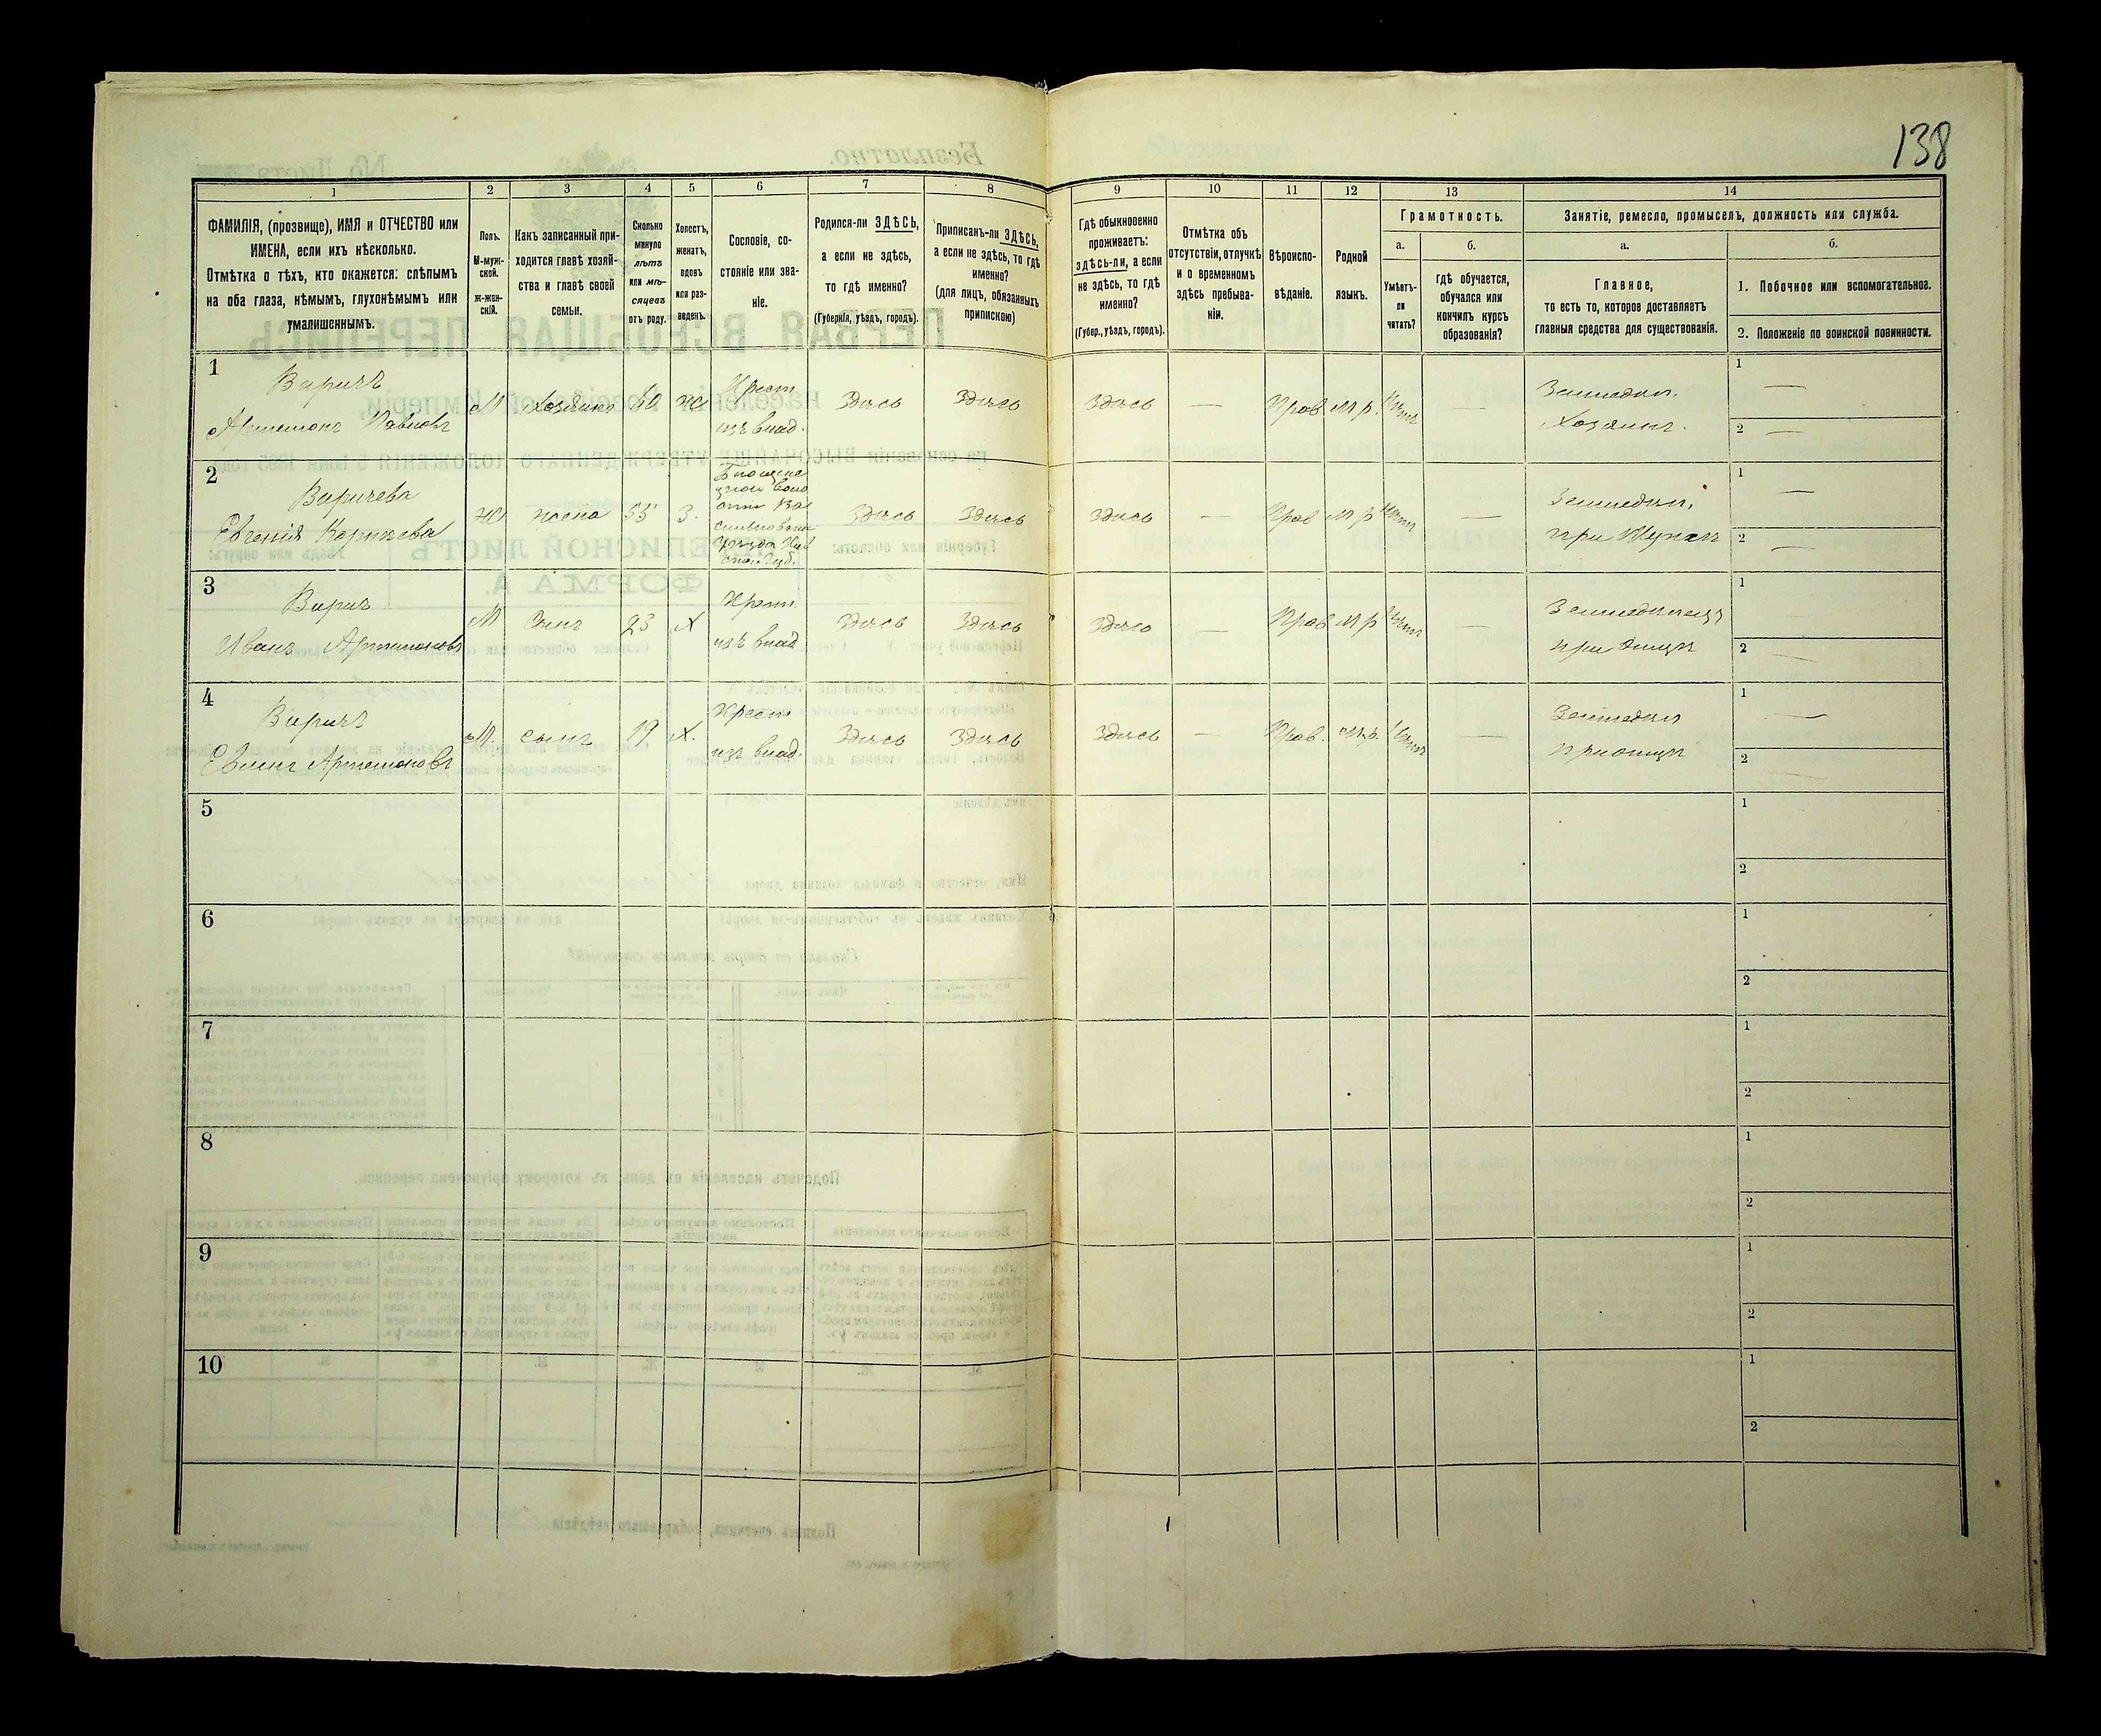 138
1
2
3
4
5
6
7
8
9
10
11
12
13
14
ФАМИЛІЯ, (прозвище), ИМЯ и ОТЧЕСТВО или
ИМЕНА, если ихъ нѣсколько.
Отмѣтка о тѣхъ, кто окажется: слѣпымъ
на оба глаза, нѣмымъ, глухонѣмымъ или
умалишеннымъ.
Полъ.
М-муж-
ской.
ж-жен-
скій.
Какъ записанный при-
ходится главѣ хозяй-
ства и главѣ своей
семьи.
Сколько
минуло
лѣтъ
или мѣ-
сяцевъ
отъ роду.
Холостъ,
женатъ,
вдовъ
или раз-
веденъ.
Сословіе, со-
стояніе или зва-
ніе.
Родился-ли ЗДѢСЬ,
а если не здѣсь,
то гдѣ именно?
(Губернія, уѣздъ, городъ).
Приписанъ-ли ЗДѢСЬ,
а если не здѣсь, то гдѣ
именно?
(для лицъ, обязанныхъ
припискою)
Гдѣ обыкновенно
проживаетъ:
здѣсь-ли, а если
не здѣсь, то гдѣ
именно?
(Губер., уѣздъ, городъ).
Отмѣтка объ
отсутствіи, отлучкѣ
и о временномъ
здѣсь пребыва-
ніи.
Вѣроиспо-
вѣданіе.
Родной
языкъ.
Грамотность.
а.
Умѣетъ-
ли
читать?
б.
гдѣ обучается,
обучался или
кончилъ курсъ
образованія?
Занятіе, ремесло, промыселъ, должность или служба.
а.
Главное,
то есть то, которое доставляетъ
главныя средства для существованія.
б.
1. Побочное или вспомогательное.
2. Положеніе по воинской повинности.
1
Варичъ
Артемонъ Павловъ
М
Хозяинъ
60
Ж
Крест
изъ влад.
Здѣсь
Здѣсь
Здѣсь
—
Прав
м р.
Нѣтъ
—
Земледѣл.
Хозяинъ.
1 —
2 —
2
Варичева
Евгенія Корнѣева
Ж
жена
55
З.
Здѣсь
Здѣсь
Здѣсь
—
Прав
м р
Нѣтъ
—
Земледѣл.
при Мужѣ
1 —
2 —
3
Варичъ
Иванъ Артемоновъ
М
Сынъ
23
Х
Крест.
изъ влад
Здѣсь
Здѣсь
Здѣсь
—
Прав
м р
Нѣтъ
—
при Отцѣ
1
2 —
4
Варичъ
Артемоновъ
М.
сынъ
19
Х.
Крест
изъ влад.
Здѣсь
Здѣсь
Здѣсь
—
Прав.
м.р.
Нѣтъ
—
Земледѣл
при отцѣ
1 —
2 —
5
1
2
6
1
2
7
1
2
8
1
2
9
1
2
10
1
2